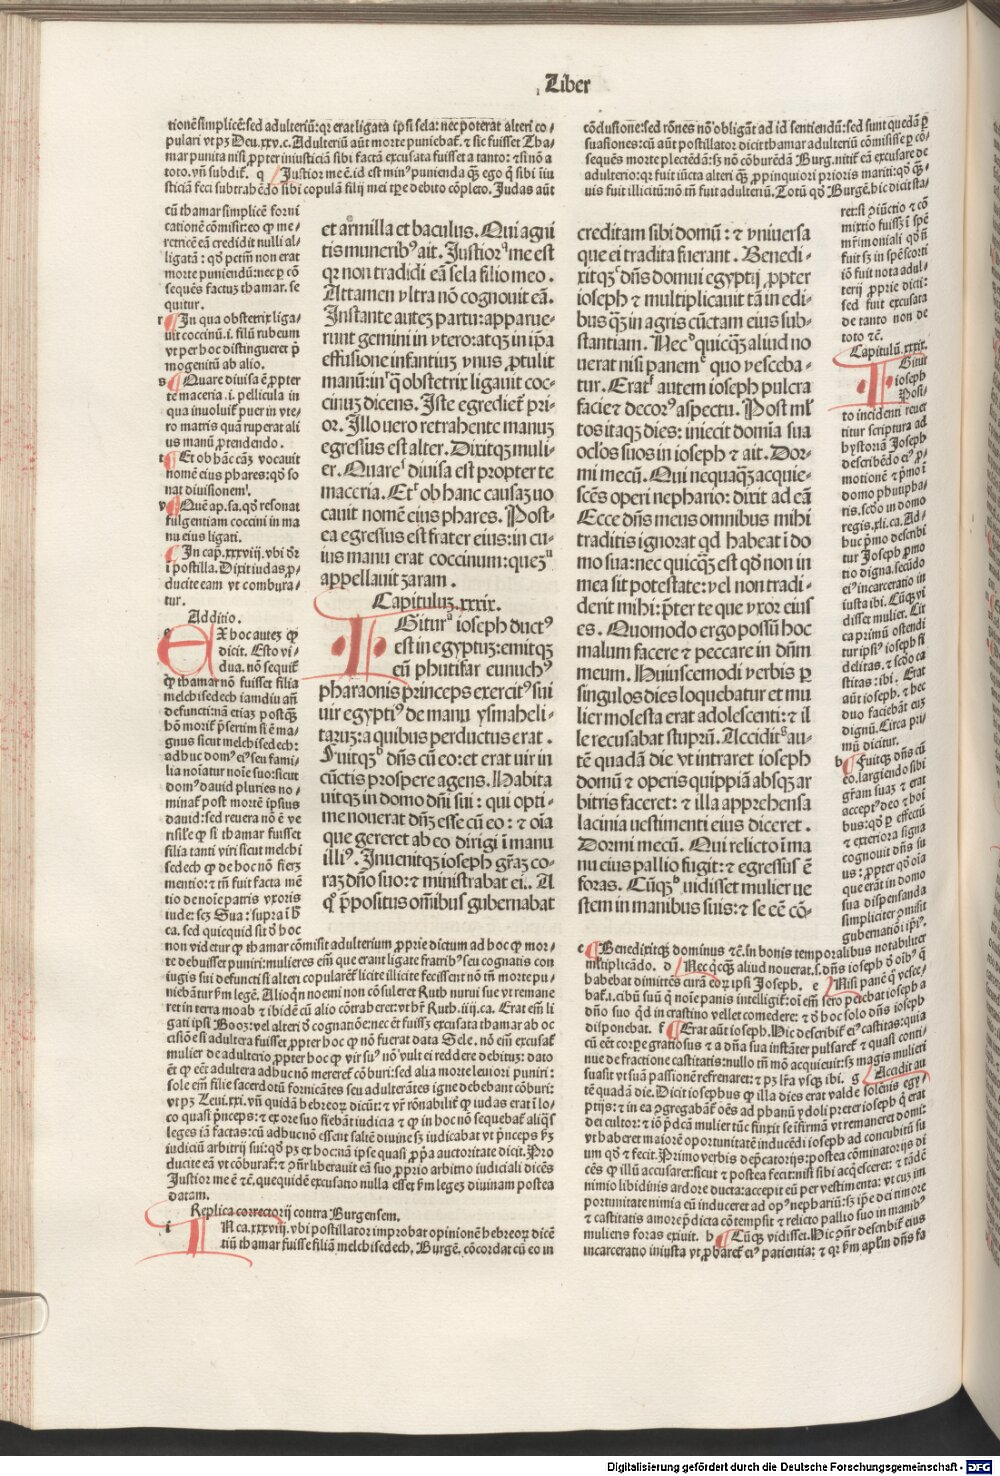 Liber
tionē simplicē: sed adulteriū: qꝛ erat ligata ipsi sela: nec poterat alteri co-
pulari vt pꝫ Deu. xxv. c. Adulteriū aūt morte puniebat̄. ⁊ sic fuisset Tha-
mar punita nisi ꝓpter iniusticiā sibi factā excusata fuisset a tanto: ⁊ si nō a
toto. vn̄ subdit̄. q Justior me ē. id est min⁹ punienda qꝫ ego q̄ sibi iiu
sticiā feci subtrahēdo sibi copulā filij mei tꝑe debito cōpleto. Judas aūt
cū thamar simplicē forni
cationē cōmisit: eo ꝙ me-
retricē eā credidit nulli al-
ligatā: qd̓ petm̄ non erat
morte puniendū: nec ꝑ cō
sequēs factuꝫ thamar. se
quitur.
r In qua obstetrix liga-
uit coccinū. i. filū rubeum
vt per hoc distingueret p̄
mogenitū ab alio.
s Quare diuisa ē ꝓpter
te maceria. i. pellicula in
qua inuoluit̄ puer in vte-
ro matris quā ruperat ali
us manū ꝓtendendo.
t Et ob hāc cāꝫ vocauit
nomē eius phares: qd̓ so
nat diuisionem.
v Quē ap. sa. qd̓ resonat
fulgentiam coccini in ma
nu eius ligati.
In cap̄. xxxviij. vbi dr̄
i postilla. Dixit iudas ꝓ-
ducite eam vt combura-
tur.
Additio.
EX hoc autez ꝙ
dicit. Esto vi-
dua. nō sequit̄
ꝙ thamar nō fuisset filia
melchisedech iamdiu an̄
defuncti: nā etiaꝫ postqꝫ
hō morit̄ p̄sertim si ē ma-
gnus sicut melchisedech:
adhuc dom⁹ ei⁹ seu fami-
lia noīatur noīe suo: sicut
dom⁹ dauid pluries no-
minat̄ post mortē ipsius
dauid: sed reuera nō ē ve
risile ꝙ si thamar fuisset
filia tanti viri sicut melchi
sedech ꝙ de hoc nō fieret
mentio: ⁊ tn̄ fuit facta mē
tio de noīe patris vxoris
iude: seꝫ Sua: supra i h̄
ca. sed quicquid sit d̓ hoc
non videtur ꝙ thamar cōmisit adulterium ꝓprie dictum ad hoc ꝙ mor-
te debuisset puniri: mulieres em̄ que erant ligate fratrib⁹ seu cognatis con
iugis sui defuncti si alteri copularet̄ licite illicite fecissent nō tn̄ morte pu-
niebātur ẜm legē. Alioqn̄ noemi non cōsuleret Ruth nurui sue vt remane
ret in terra moab ⁊ ibidē cū alio cōtraheret: vt hr̄ Ruth. iiij. ca. Erat em̄ li
gati ipsi Booz: vel alteri d̓ cognatiōe: nec ēt fuissꝫ excusata thamar ab oc
cisiōe si adultera fuisset, ꝓpter hoc ꝙ nō fuerat data Sele. nō em̄ excusat̄
mulier de adulterio ꝓpter hoc ꝙ vir su⁹ nō vult ei reddere debituꝫ: dato
ēt ꝙ eēt adultera adhuc nō mereret̄ cōburi: sed alia morte leuiori puniri:
sole em̄ filie sacerdotū fornicātes seu adulterātes igne debebant cōburi:
vt pꝫ Leui. xxi. vn̄ quidā hebreoꝝ dicūt: ⁊ vr̄ rōnabilit̄ ꝙ iudas erat i lo-
co quasi p̄nceps: ⁊ ex ore suo fiebāt iudicia ⁊ ꝙ in hoc nō sequebat̄ aliq̄s
leges iā factas: cū adhuc nō essent saltē diuine sꝫ iudicabat vt p̄nceps ẜꝫ
iudiciū arbitrij sui: qd̓ pꝫ ex hoc: nā ipse quasi ꝓpa auctoritate dicit. Pro
ducite eā vt cōburat̄: ⁊ ꝯn̄r liberauit eā suo ꝓprio arbitrio iudiciali dicēs
Justior me ē ⁊ē. que quidē excusatio nulla esset ẜm legeꝫ diuinam postea
datam.
Replica correctorij contra Burgensem.
i IN ca. xxxviij. vbi postillator improbat opinionē hebreoꝝ dicē
tiū thamar fuisse filiā melchisedech, Burgē. cōcordat cū eo in
et armilla et baculus. Qui agni
tis munerib⁹ ait. Justior me est
qꝛ non tradidi eā sela filio meo.
Attamen vltra nō cognouit eā.
Instante autez partu: apparue-
runt gemini in vtero: atqꝫ in ip̄a
effusione infantiuꝫ vnus ꝓtulit
manū: in q̄ obstetrix ligauit coc-
cinuꝫ dicens. Iste egrediet̄ pri-
or. Illo vero retrahente manuꝫ
egressus est alter. Dixitqꝫ muli-
er. Quare diuisa est propter te
maceria. Et ob hanc causaꝫ uo
cauit nomē eius phares. Post-
ea egressus est frater eius: in cu-
ius manu erat coccinum: queꝫ
appellauit ꝫaram.
Capituluꝫ. xxxix.
IGitur ioseph duct⁹
est in egyptuꝫ: emitqꝫ
eū phutifar eunuch⁹
pharaonis princeps exercit⁹ sui
uir egypti⁹ de manu ysmaheli-
taruꝫ: a quibus perductus erat.
Fuitqꝫ dn̄s cū eo: et erat uir in
cūctis prospere agens. Habita
uitqꝫ in domo dn̄i sui: qui opti-
me nouerat dn̄ꝫ esse cū eo: ⁊ oīa
que gereret ab eo dirigi i manu
illi⁹. Inuenitqꝫ ioseph gr̄aꝫ co-
raꝫ dn̄o suo: ⁊ ministrabat ei. A
q̊ p̄positus om̄ibus gubernabat
cōclusione: sed rōnes nō obligāt ad id sentiendū: sed sunt quedā ꝑ
suasiones: cū aūt postillator dicit thamar adulteriū cōmisisse ꝑ cō-
sequēs morte plectēdā: sꝫ nō cōburēdā Burg. nitit̄ eā excusare de
adulterio: qꝛ fuit iūcta alteri qꝫ ꝓpinquiori prioris mariti: qd̓ qꝫ-
uis fuit illicitū: nō tn̄ fuit adulteriū. Totū qd̓ Burgē. hic dicit sta-
creditam sibi domū: ⁊ vniuersa
que ei tradita fuerant. Benedi-
xitqꝫ dn̄s domui egyptij ꝓpter
ioseph ⁊ multiplicauit tā in edi-
bus qꝫ in agris cūctam eius sub-
stantiam. Nec quicqꝫ aliud no
uerat nisi panem quo vesceba-
tur. Erat autem ioseph pulcra
facie ⁊ decor⁹ aspectu. Post ml̄
tos itaqꝫ dies: iniecit domīa sua
oclos suos in ioseph ⁊ ait. Dor-
mi mecū. Qui nequaqꝫ acquie-
scēs operi nephario: dixit ad eā
Ecce dn̄s meus omnibus mihi
traditis ignorat qd habeat i do
mo sua: nec quicqꝫ est qd̓ non in
mea sit potestate: vel non tradi-
derit mihi: p̄ter te que vxor eius
es. Quomodo ergo possū hoc
malum facere ⁊ peccare in dn̄m
meum. Huiuscemodi verbis ꝑ
singulos dies loquebatur et mu
lier molesta erat adolescenti: ⁊ il
le recusabat stuprū. Accidit au-
tē quadā die vt intraret ioseph
domū ⁊ operis quippiā absqꝫ ar
bitris faceret: ⁊ illa apprehensa
lacinia uestimenti eius diceret.
Dormi mecū. Qui relicto i ma
nu eius pallio fugit: ⁊ egressus ē
foras. Cūqꝫ uidisset mulier ue
stem in manibus suis: ⁊ se eē cō-
ret: si ꝯiūctio ⁊ cō
mixtio fuissꝫ i spē
mr̄imoniali qd̓ n̄
fuit sꝫ in spē scorti
iō fuit nota adul-
terij ꝓprie dicti:
sed fuit excusata
de tanto non de
toto ⁊ē.
Capitulū. xxxix.
IGitur
ioseph
Posi-
to incidenti reuer
titur scriptura ad
hystoriā Joseph
describēdo ei⁹ ꝓ-
motionē ⁊ p̄mo i
domo phutipha-
ris. scd̓o in domo
regis. xli. ca. Ad-
huc p̄mo describi
tur Joseph ꝓmo
tio digna. secūdo
ei⁹ incarceratio in
iusta ibi. Cūqꝫ vi
disset mulier. Cir
ca primū ostendi
tur ipsi⁹ ioseph fi
delitas. ⁊ scd̓o ca
stitas: ibi. Erat
aūt ioseph. ⁊ hec
duo faciebāt euꝫ
dignū. Circa pri-
mū dicitur.
b Fuitqꝫ dn̄s cū
eo. largiendo sibi
gr̄am suaꝫ ⁊ erat
accept⁹ deo ⁊ hoī
bus: qd̓ ꝑ effectū
⁊ exteriora signa
cognouit dn̄s su
us: ꝓpter qd̓ oīa
que erāt in domo
sua dispensanda
simpliciter ꝯmisit
gubernatiōi ip̄i⁹.
c Benedixitqꝫ dominus ⁊ē. in bonis temporalibus notabiliter
mltiplicādo. d Nec q̄cqꝫ aliud nouerat. s. dn̄s ioseph d̓ oīb⁹ q̄
habebat dimittēs curā eoꝝ ipsi Joseph. e Nisi panē q̊ vesce-
bat̄. i. cibū suū q̄ noīe panis intelligit̄: oī em̄ sero petebat ioseph a
dn̄o suo qd in crastino vellet comedere: ⁊ d̓ hoc solo dn̄s ioseph
disponebat. f Erat aūt ioseph. Hic describit̄ ei⁹ castitas: quia
cū eēt corꝑe gratiosus ⁊ a dn̄a sua instāter pulsaret̄ ⁊ quasi conti-
nue de fractione castitatis: nullo tn̄ mō acquieuit: sꝫ magis mulieri
suasit vt suā passionē refrenaret: ⁊ pꝫ lr̄a vsqꝫ ibi. g Accidit au
tē quadā die. Dicit iosephus ꝙ illa dies erat valde solēnis egy-
ptijs: ⁊ in ea ꝯgregabāt̄ oēs ad phanū ydoli preter ioseph q̄ erat
dei cultor: ⁊ iō p̄dcā mulier tūc finxit se ifirmā vt remaneret domi:
vt haberet maiorē oportunitatē inducēdi ioseph ad concubitū su
um qd̓ ⁊ fecit. Primo verbis dep̄catorijs: postea cōminatorijs di
cēs ꝙ illū accusaret: sicut ⁊ postea fecit: nisi sibi acq̄esceret: ⁊ tādē
nimio libidinis ardore ducta: accepit eū per vestimenta: vt cuꝫ im
portunitate nimia eū induceret ad op⁹ nephariū: sꝫ ip̄e dei timore
⁊ castitatis amore p̄dicta cōtempsit ⁊ relicto pallio suo in manib⁹
muliens foras exiuit. h Cūqꝫ vidisset. Hic ꝯn̄r describit̄ eius
incarceratio iniusta vt ꝓbaret̄ ei⁹ patientia: ⁊ qꝛ ẜm apl̄m dn̄s fa